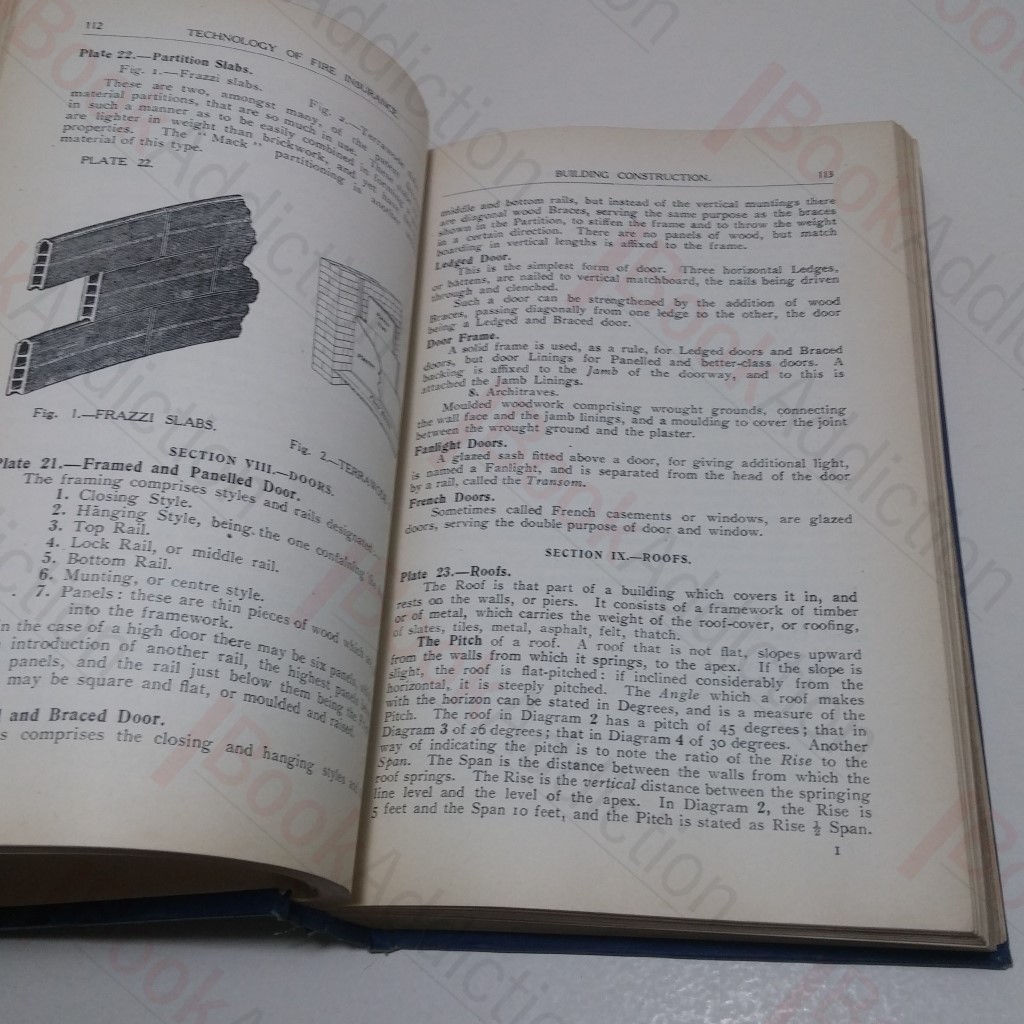 112
TECHNOLOGY OF FIRE INSURANCE.
Plate 22.—Partition Slabs.
Fig. 1.—Frazzi slabs. Fig. 2.—Terrawode
These are two, amongst many, of the patent
material partitions, that are so much in use. These
in such a manner as to be easily combined in forming
are lighter in weight than brickwork, and yet have
properties. The "Mack" partitioning is another
material of this type.
PLATE 22.
Fig. 1.—FRAZZI SLABS.
Fig. 2.—TERRAWODE
SECTION VIII.—DOORS.
Plate 21.—Framed and Panelled Door.
The framing comprises styles and rails designated
1. Closing Style.
2. Hanging Style, being the one containing the
3. Top Rail.
4. Lock Rail, or middle rail.
5. Bottom Rail.
6. Munting, or centre style.
7. Panels: these are thin pieces of wood which
into the framework.
In the case of a high door there may be six panels,
introduction of another rail, the highest panels
panels, and the rail just below them being the
may be square and flat, or moulded and raised.
and Braced Door.
comprises the closing and hanging styles
BUILDING CONSTRUCTION. 113
middle and bottom rails, but instead of the vertical muntings there
are diagonal wood Braces, serving the same purpose as the braces
shown in the Partition, to stiffen the frame and to throw the weight
in a certain direction. There are no panels of wood, but match
boarding in vertical lengths is affixed to the frame.
Ledged Door.
This is the simplest form of door. Three horizontal Ledges,
or battens, are nailed to vertical matchboard, the nails being driven
through and clenched.
Such a door can be strengthened by the addition of wood
Braces, passing diagonally from one ledge to the other, the door
being a Ledged and Braced door.
Door Frame.
A solid frame is used, as a rule, for Ledged doors and Braced
doors, but door Linings for Panelled and better-class doors. A
backing is affixed to the Jamb of the doorway, and to this is
attached the Jamb Linings.
8. Architraves.
Moulded woodwork comprising wrought grounds, connecting
the wall face and the jamb linings, and a moulding to cover the joint
between the wrought ground and the plaster.
Fanlight Doors.
A glazed sash fitted above a door, for giving additional light,
is named a Fanlight, and is separated from the head of the door
by a rail, called the Transom.
French Doors.
Sometimes called French casements or windows, are glazed
doors, serving the double purpose of door and window.
SECTION IX.—ROOFS.
Plate 23.—Roofs.
The Roof is that part of a building which covers it in, and
rests on the walls, or piers. It consists of a framework of timber
or of metal, which carries the weight of the roof-cover, or roofing,
of slates, tiles, metal, asphalt, felt, thatch.
The Pitch of a roof. A roof that is not flat, slopes upward
from the walls from which it springs, to the apex. If the slope is
slight, the roof is flat-pitched: if inclined considerably from the
horizontal, it is steeply pitched. The Angle which a roof makes
with the horizon can be stated in Degrees, and is a measure of the
Pitch. The roof in Diagram 2 has a pitch of 45 degrees; that in
Diagram 3 of 26 degrees; that in Diagram 4 of 30 degrees. Another
way of indicating the pitch is to note the ratio of the Rise to the
Span. The Span is the distance between the walls from which the
roof springs. The Rise is the vertical distance between the springing
line level and the level of the apex. In Diagram 2, the Rise is
5 feet and the Span 10 feet, and the Pitch is stated as Rise ½ Span.
I
BookAddiction